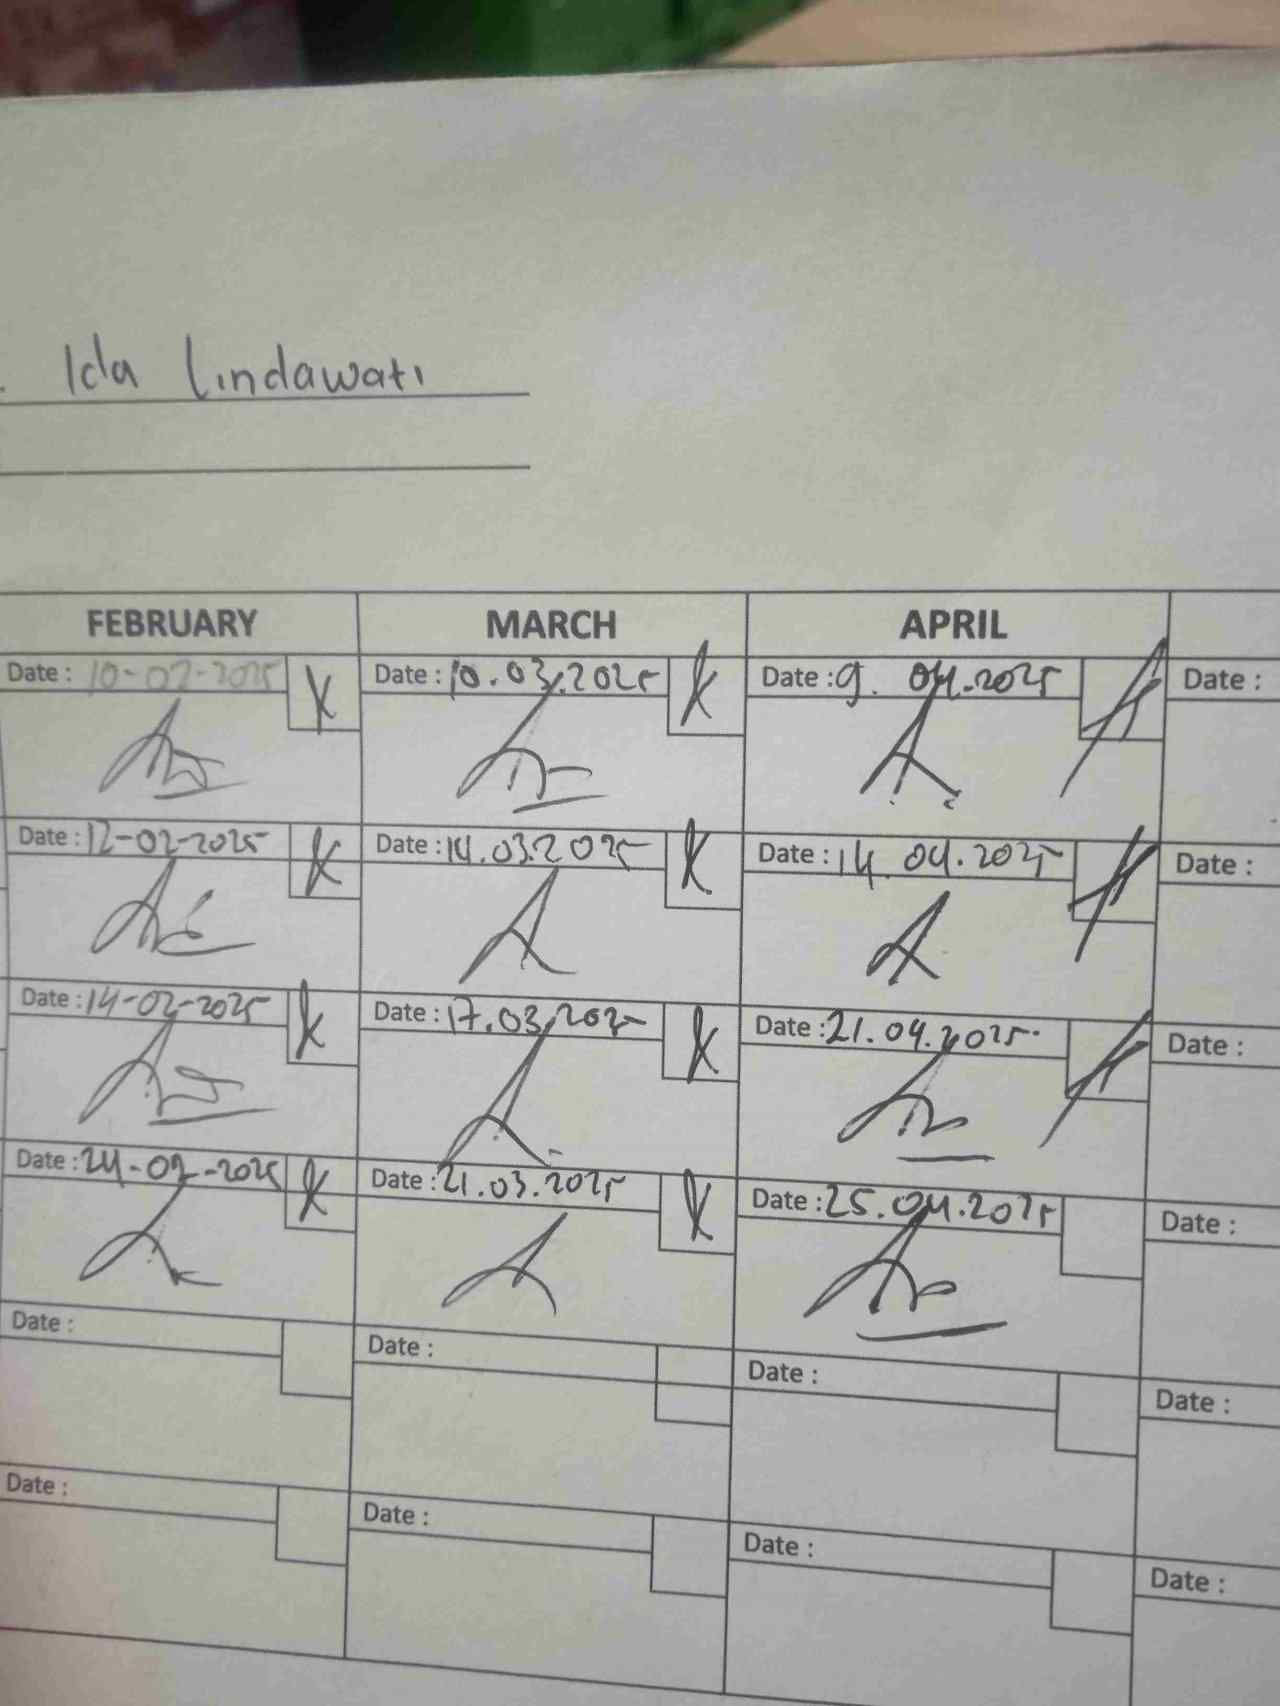 Ida Lindawati
FEBRUARY MARCH APRIL
Date : 10-02-2025 Date : 10.03.2025 Date : 9. 04.2025 Date :
Date : 12-02-2025 Date : 14.03.2025 Date : 14.04.2025 Date :
Date : 14-02-2025 Date : 17.03.2025 Date : 21.04.2025 Date :
Date : 24-02-2025 Date : 21.03.2025 Date : 25.04.2025 Date :
Date : Date : Date : Date :
Date : Date : Date : Date :